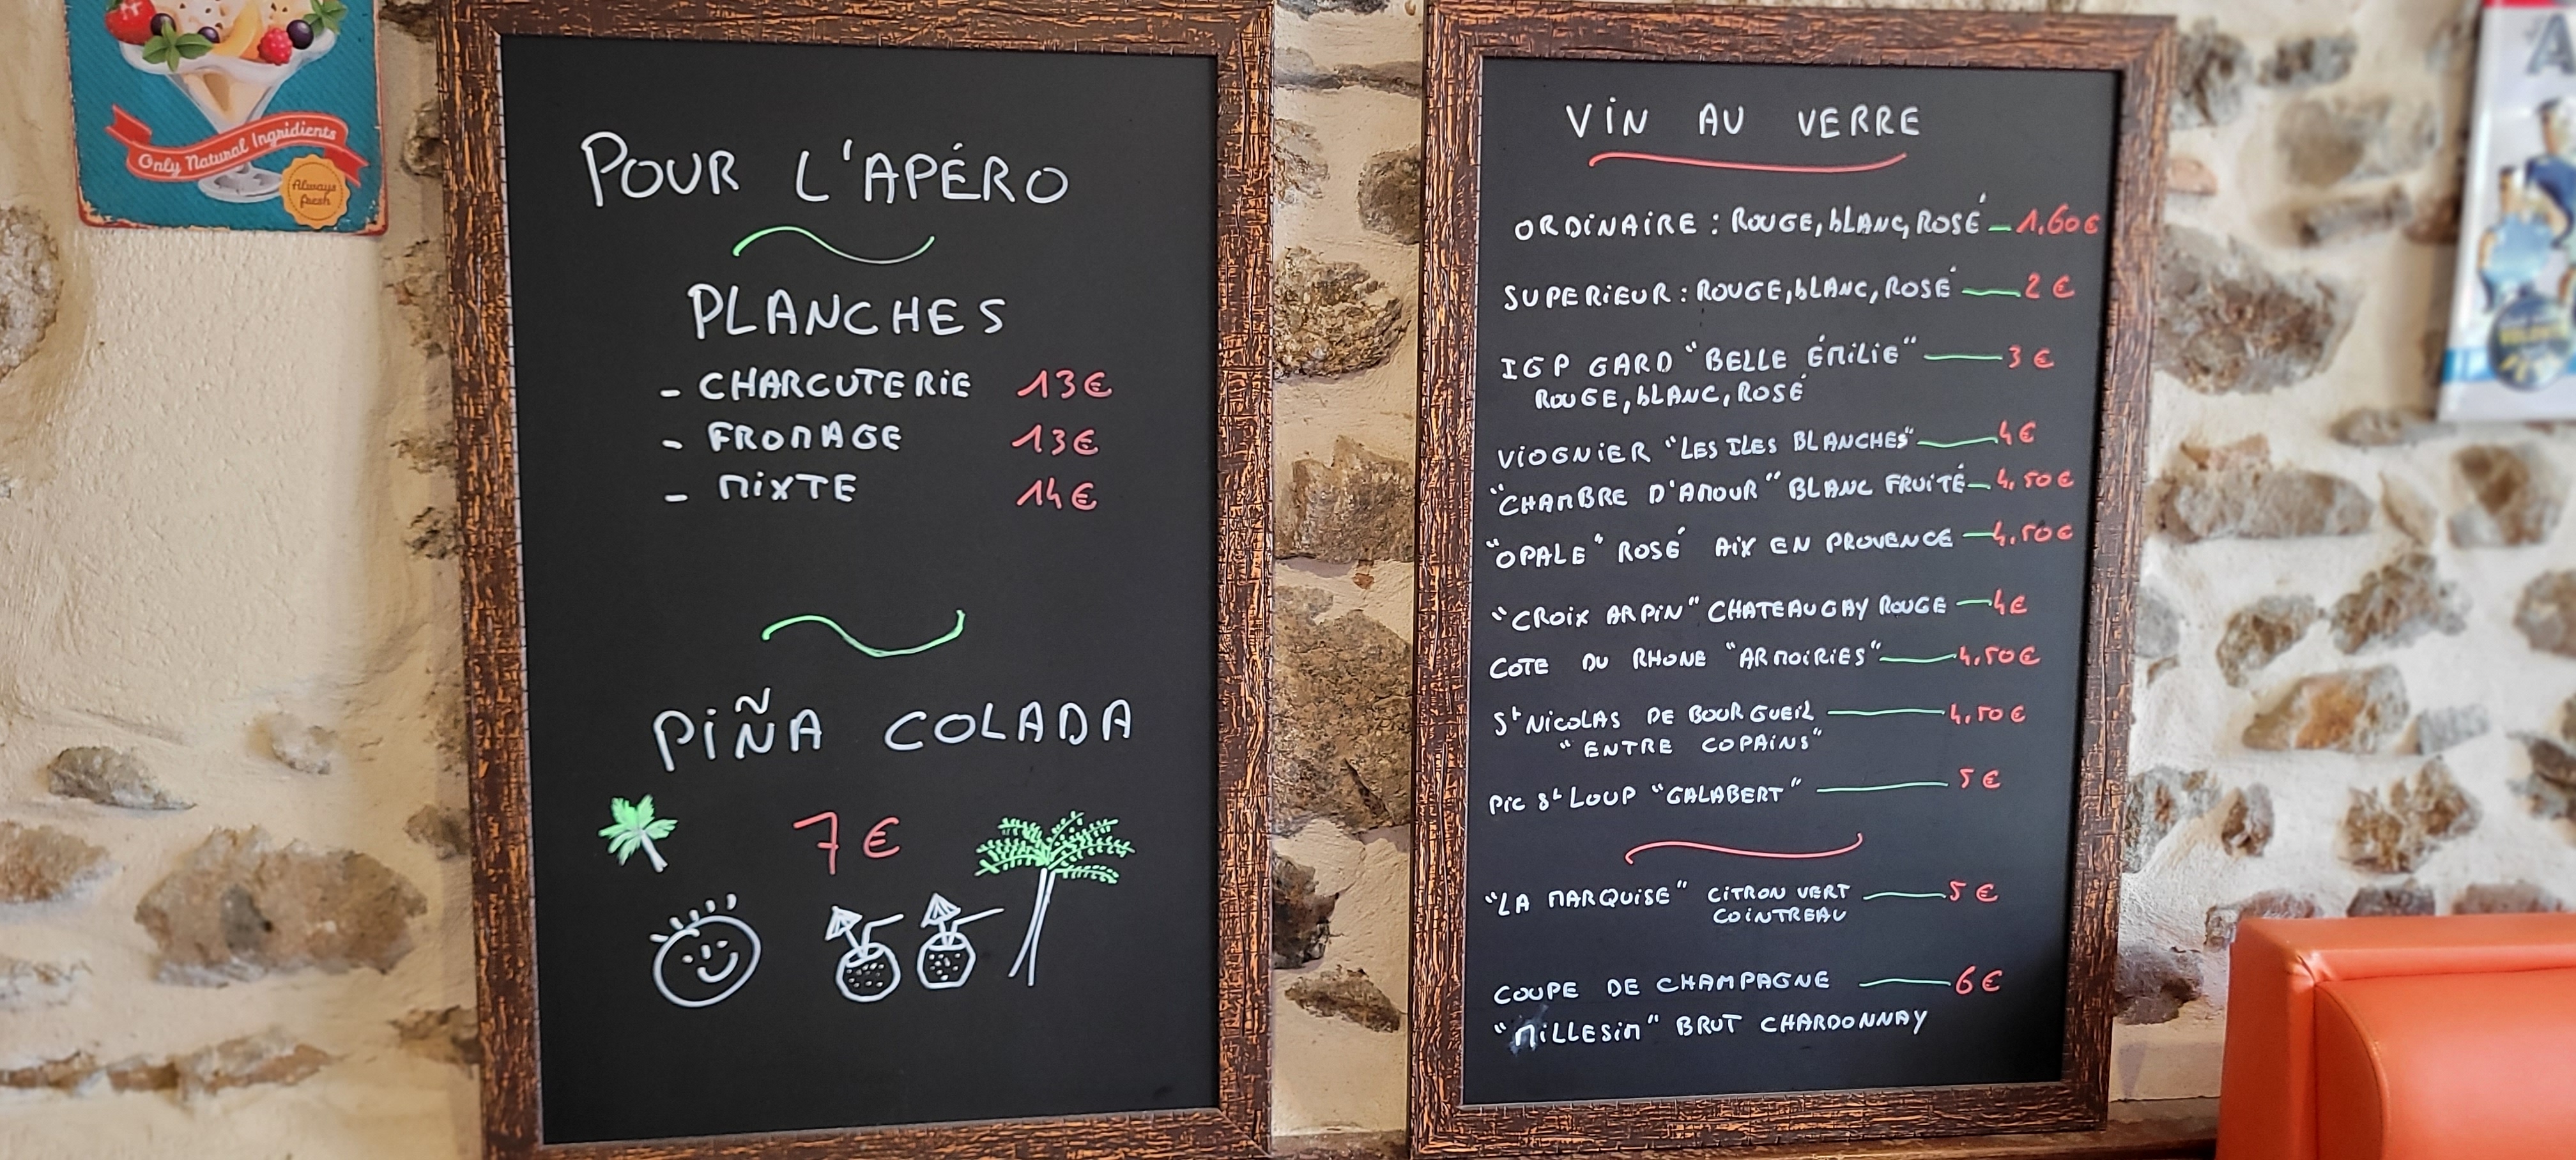 Only Natural Ingridients
Always
fresh
POUR L'APÉRO
PLANCHES
- CHARCUTERIE 13€
- FROMAGE 13€
- MIXTE 14€
PIÑA COLADA
7€
VIN AU VERRE
ORDINAIRE : ROUGE, bLANC, ROSÉ — 1,60€
SUPERIEUR : ROUGE, bLANC, ROSÉ — 2€
IGP GARD "BELLE ÉMILIE" — 3€
ROUGE, bLANC, ROSÉ
VIOGNIER "LES ILES BLANCHES" — 4€
"CHAMBRE D'AMOUR" BLANC FRUITÉ — 4,50€
"OPALE" ROSÉ AIX EN PROVENCE — 4,50€
"CROIX ARPIN" CHATEAUGAY ROUGE — 4€
COTE DU RHONE "ARMOIRIES" — 4,50€
St NICOLAS DE BOURGUEIL — 4,50€
"ENTRE COPAINS"
PIC St LOUP "GALABERT" — 5€
"LA MARQUISE" CITRON VERT — 5€
COINTREAU
COUPE DE CHAMPAGNE — 6€
"MILLESIM" BRUT CHARDONNAY